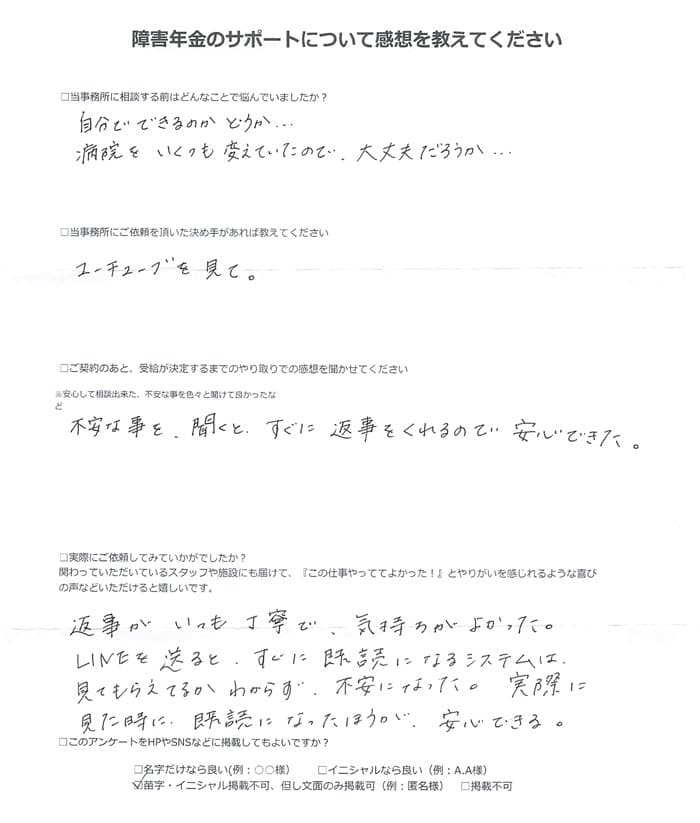 障害年金のサポートについて感想を教えてください
□当事務所に相談する前はどんなことで悩んでいましたか？
自分でできるのか どうか…
病院を いくつも 変えていたので、大丈夫だろうか…
□当事務所にご依頼を頂いた決め手があれば教えてください
ユーチューブを 見て。
□ご契約のあと、受給が決定するまでのやり取りでの感想を聞かせてください
※安心して相談出来た、不安な事を色々と聞けて良かったな
ど
不安な事を、聞くと、すぐに 返事をくれるので 安心できた。
□実際にご依頼してみていかがでしたか？
関わっていただいているスタッフや施設にも届けて、『この仕事やっててよかった！』とやりがいを感じれるような喜び
の声などいただけると嬉しいです。
返事が いつも 丁寧で、気持ちがよかった。
LINEを 送ると、すぐに 既読になるシステムは、
見てもらえてるか わからず、不安になった。 実際に
見た時に、既読に なったほうが、安心できる。
□このアンケートをHPやSNSなどに掲載してもよいですか？
□名字だけなら良い(例：○○様） □イニシャルなら良い（例：A.A様）
☑苗字・イニシャル掲載不可、但し文面のみ掲載可（例：匿名様） □掲載不可